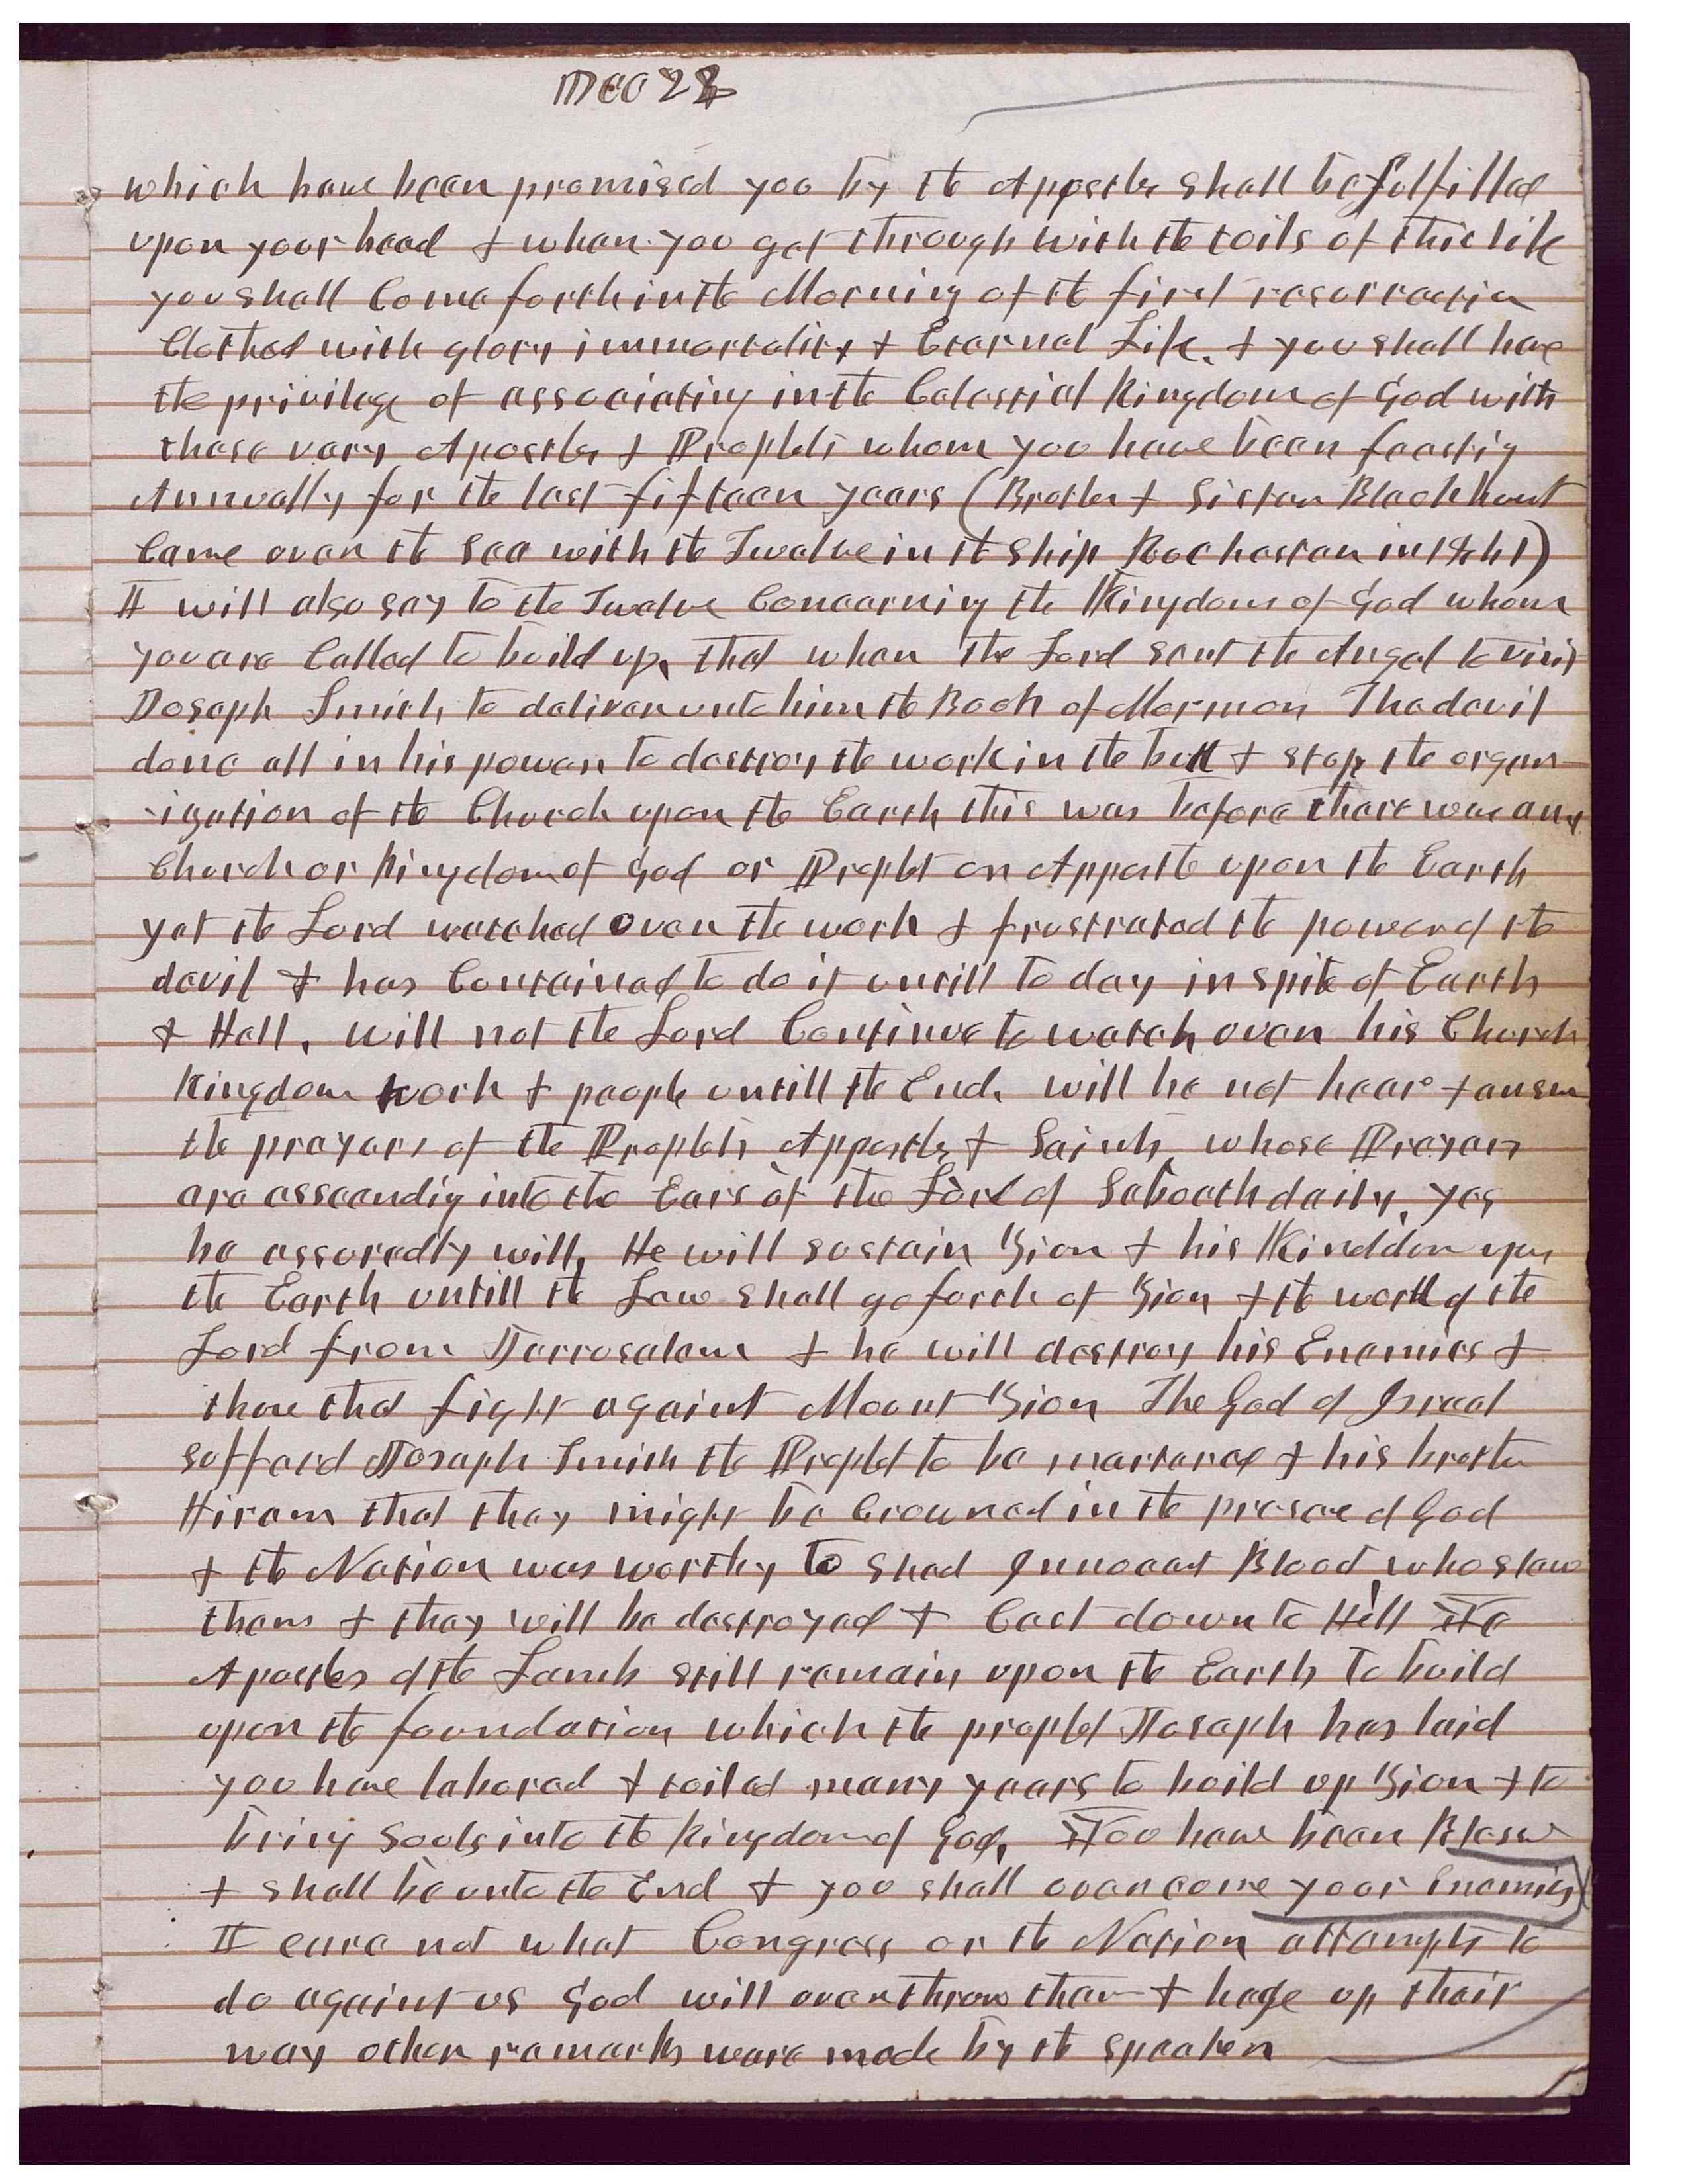 Dec 22
which have been promised you by the Appostles shall be fulfilled
upon your head & when you get through with the toils of this life
you shall Come forth in the Morning of the first resurrection
Clothed with glory immortality & Eternal Life. & you shall have
the privilege of associating in the Celestial Kingdom of God with
those very Apostles & Prophets whom you have been feasting
Annually for the last fifteen years (Brother & Sister Blackhurst
Came over the sea with the Twelve in the Ship Rochester in 1841)
I will also say to the Twelve Concerning the Kingdom of God whom
you are Called to build up, that when the Lord sent the Angel to visit
Joseph Smith, to deliver unto him the Book of Mormon The devil
done all in his power to destroy the work in the bud & stop the organ-
-ization of the Church upon the Earth this was before there was any
Church or Kingdom of God or Prophet or Appostle upon the Earth
yet the Lord watched over the work & frustrated the power of the
devil & has Contained to do it untill to day in spite of Earth
& Hell, will not the Lord Continue to watch over his Church
Kingdom work & people untill the End, will he not hear & answer
the prayers of the Prophets Appostles & Saints, whose Prayers
are asscending into the Ears of the Lord of Sabaoth daily, yes
he assuredly will, He will sustain Zion & his Kinddom upon
the Earth untill the Law shall go forth of Zion & the word of the
Lord from Jerrusalem & he will destroy his Enemies &
those that fight against Mount Zion The God of Israel
sufferd Joseph Smith the Prophet to be martered & his brother
Hiram that they might be Crowned in the presence of God
& the Nation was worthy to shed Innocent Blood, who slew
them & they will be destroyed & Cast down to Hell The
Apostles of the Lamb still remain upon the Earth to build
upon the foundation which the prophet Joseph has laid
you have labored & toiled many years to build up Zion & to
bring Souls into the Kingdom of God, You have been Blessed
& shall be unto the End & you shall overcome your Enemies
I care not what Congress or the Nation attempts to
do against us God will overthrow them & hedge up their
way other remarks were made by the speaker